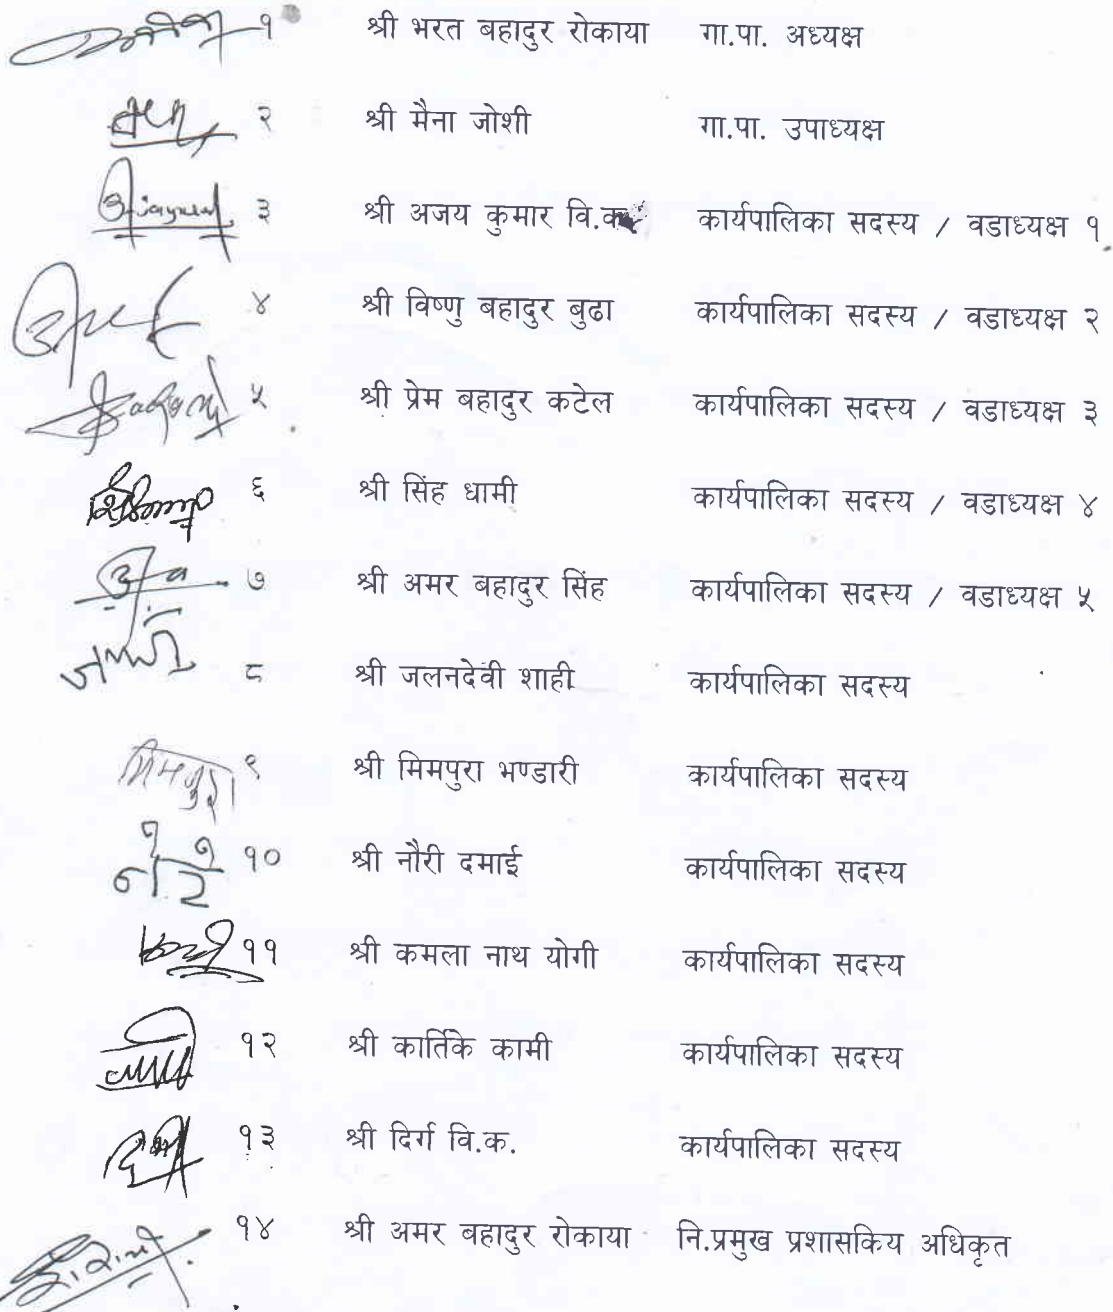 १ श्री भरत बहादुर रोकाया गा.पा. अध्यक्ष
२ श्री मैना जोशी गा.पा. उपाध्यक्ष
३ श्री अजय कुमार वि.क कार्यपालिका सदस्य / वडाध्यक्ष १
४ श्री विष्णु बहादुर बुढा कार्यपालिका सदस्य / वडाध्यक्ष २
५ श्री प्रेम बहादुर कटेल कार्यपालिका सदस्य / वडाध्यक्ष ३
६ श्री सिंह धामी कार्यपालिका सदस्य / वडाध्यक्ष ४
७ श्री अमर बहादुर सिंह कार्यपालिका सदस्य / वडाध्यक्ष ५
८ श्री जलनदेवी शाही कार्यपालिका सदस्य
९ श्री मिमपुरा भण्डारी कार्यपालिका सदस्य
१० श्री नौरी दमाई कार्यपालिका सदस्य
११ श्री कमला नाथ योगी कार्यपालिका सदस्य
१२ श्री कार्तिके कामी कार्यपालिका सदस्य
१३ श्री दिर्ग वि.क. कार्यपालिका सदस्य
१४ श्री अमर बहादुर रोकाया नि.प्रमुख प्रशासकिय अधिकृत